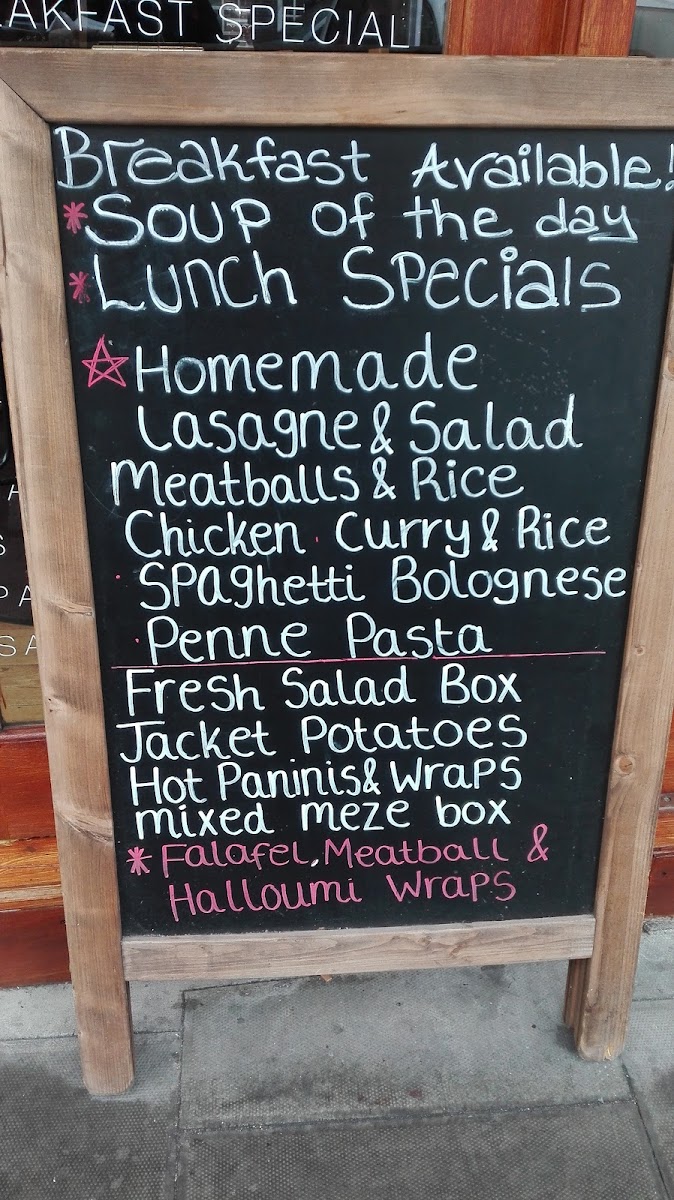 AKFAST SPECIAL
Breakfast Available!
*Soup of the day
*Lunch Specials
☆Homemade
Lasagne & Salad
Meatballs & Rice
Chicken Curry & Rice
Spaghetti Bolognese
Penne Pasta
Fresh Salad Box
Jacket Potatoes
Hot Paninis & Wraps
mixed meze box
* Falafel, Meatball &
Halloumi Wraps